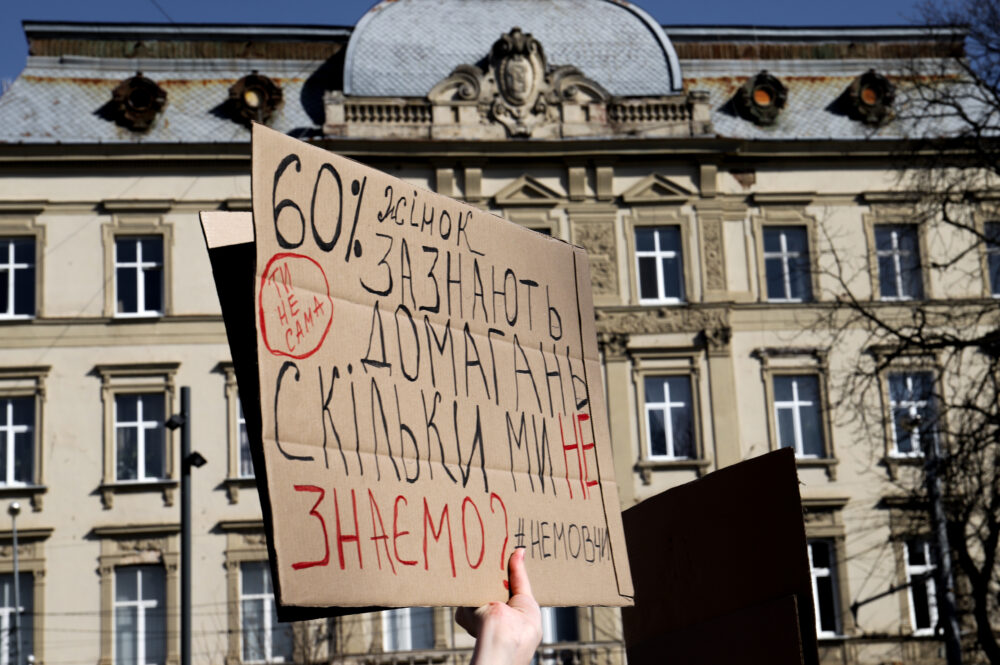 60% жінок
ЗАЗНАЮТЬ
ДОМАГАНЬ
ТИ
НЕ
САМА
СКІЛЬКИ МИ НЕ
ЗНАЄМО?
#НЕМОВЧИ